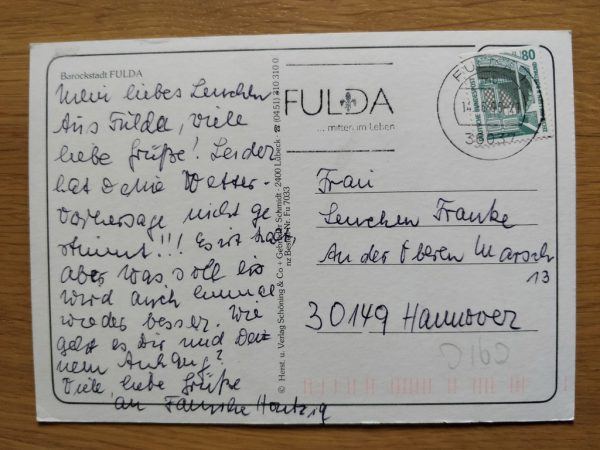 Barockstadt FULDA
Mein liebes Lenchen
Aus Fulda, viele
liebe Grüße! Leider
hat Deine Wetter-
vorhersage nicht ge
stimmt!!! Es ist kalt,
aber was soll's
wird auch einmal
wieder besser. Wie
geht es Dir und Dei
nem Anhang?
Viele liebe Grüße
an Familie
© Herst. u. Verlag Schöning & Co + Gebrüder Schmidt · 2400 Lübeck · ☎ (0451) 310 310 0
nz Bestell-Nr. Fu 7033
FULDA
... mitten im Leben
80
14.
Frau
Lenchen Franke
An der Oberen Marsch
13
30149 Hannover